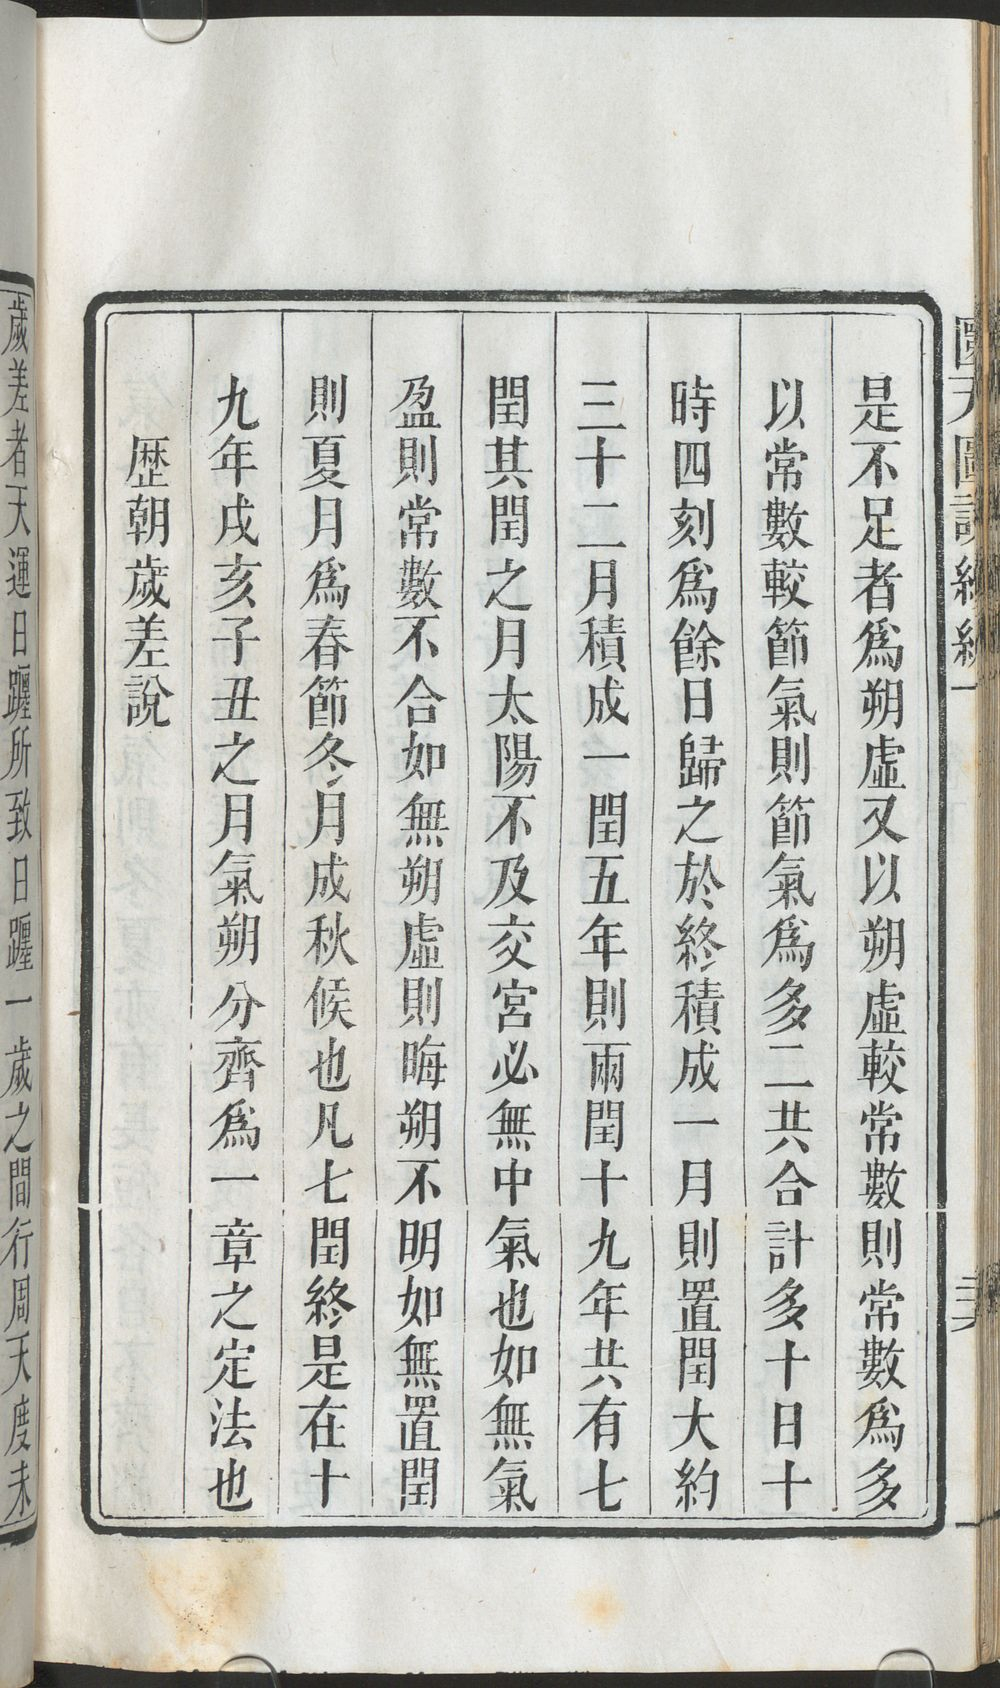 圜天圖說續編一
二六
是不足者爲朔虛又以朔虛較常數則常數爲多
以常數較節氣則節氣爲多二共合計多十日十
時四刻爲餘日歸之於終積成一月則置閏大約
三十二月積成一閏五年則兩閏十九年共有七
閏其閏之月太陽不及交宮必無中氣也如無氣
盈則常數不合如無朔虛則晦朔不明如無置閏
則夏月爲春節冬月成秋候也凡七閏終是在十
九年戌亥子丑之月氣朔分齊爲一章之定法也
歷朝歲差說
歲差者天運日躔所致日躔一歲之間行周天度未